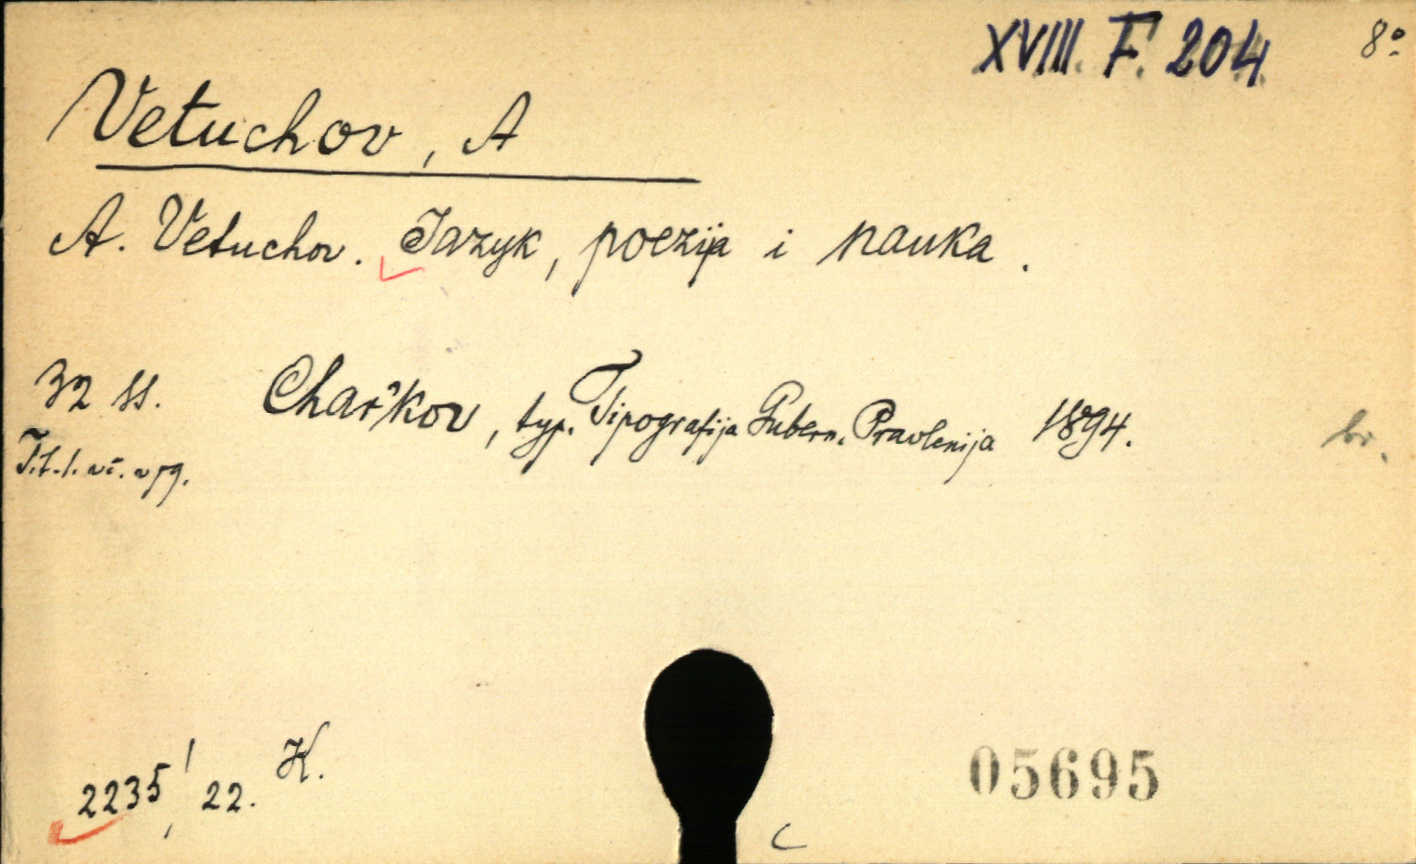 XVIII. F. 204 8°
Vetuchov, A
A. Vetuchov. Jazyk, poezija i nauka.
32 ss. Char'kov, typ. Tipografija Gubern. Pravlenija 1894.
br.
Tit. l.
2235/22. K.
05695
C